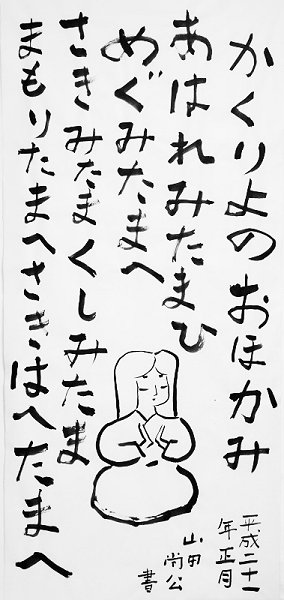 かくりよのおほかみ
あはれみたまひ
めぐみたまへ
さきみたまくしみたま
まもりたまへさきはへたまへ
平成二十一
年正月
山田尚公
書